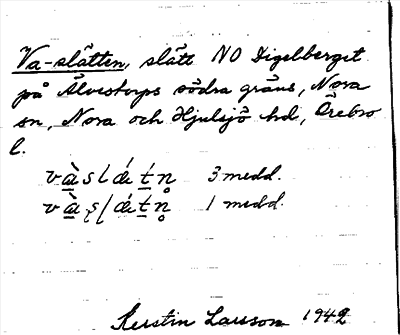 Va-slätten, slätt NO Digelberget
på Älvestorps södra gräns, Nora
sn, Nora och Hjulsjö hd, Örebro
l.
và̱slǽt̠n̥ 3 medd.
và̱ʂlǽt̠n̥ 1 medd.
Kerstin Larsson 1949